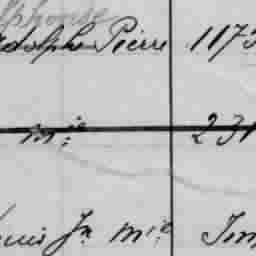 lphonse
dolphe Pierre 1173
mie 231
ouis Jn mie